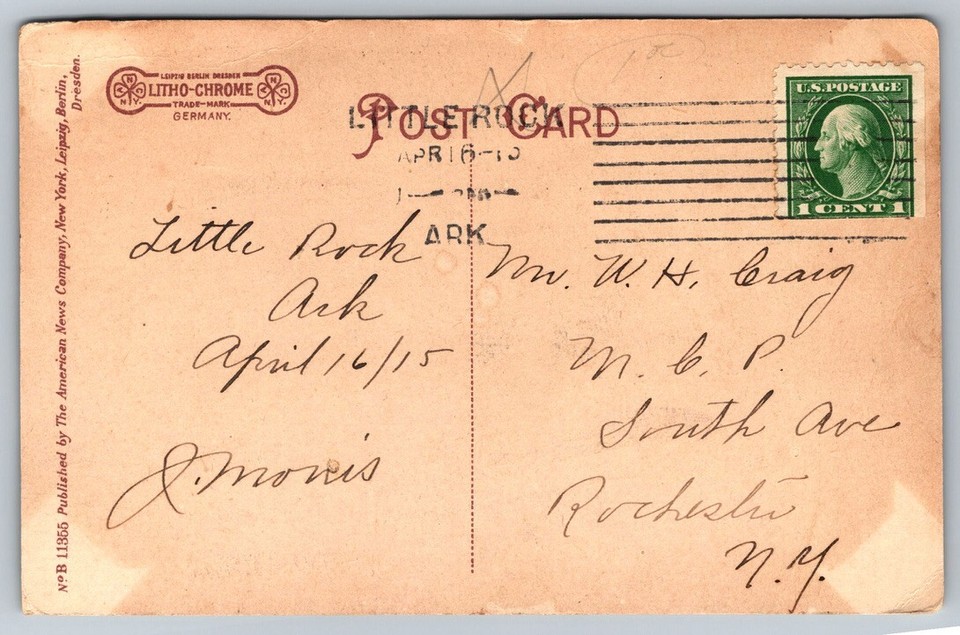 LEIPZIG BERLIN DRESDEN
LITHO-CHROME
TRADE-MARK
GERMANY.
POST CARD
LITTLE ROCK
APR 16-15
ARK
U.S. POSTAGE
1 CENT 1
Little Rock
Ark
April 16/15
J. Morris
Mr. W. H. Craig
M. C. P.
South Ave
Rochester
N.Y.
No B 11355 Published by The American News Company, New York, Leipzig, Berlin,
Dresden.